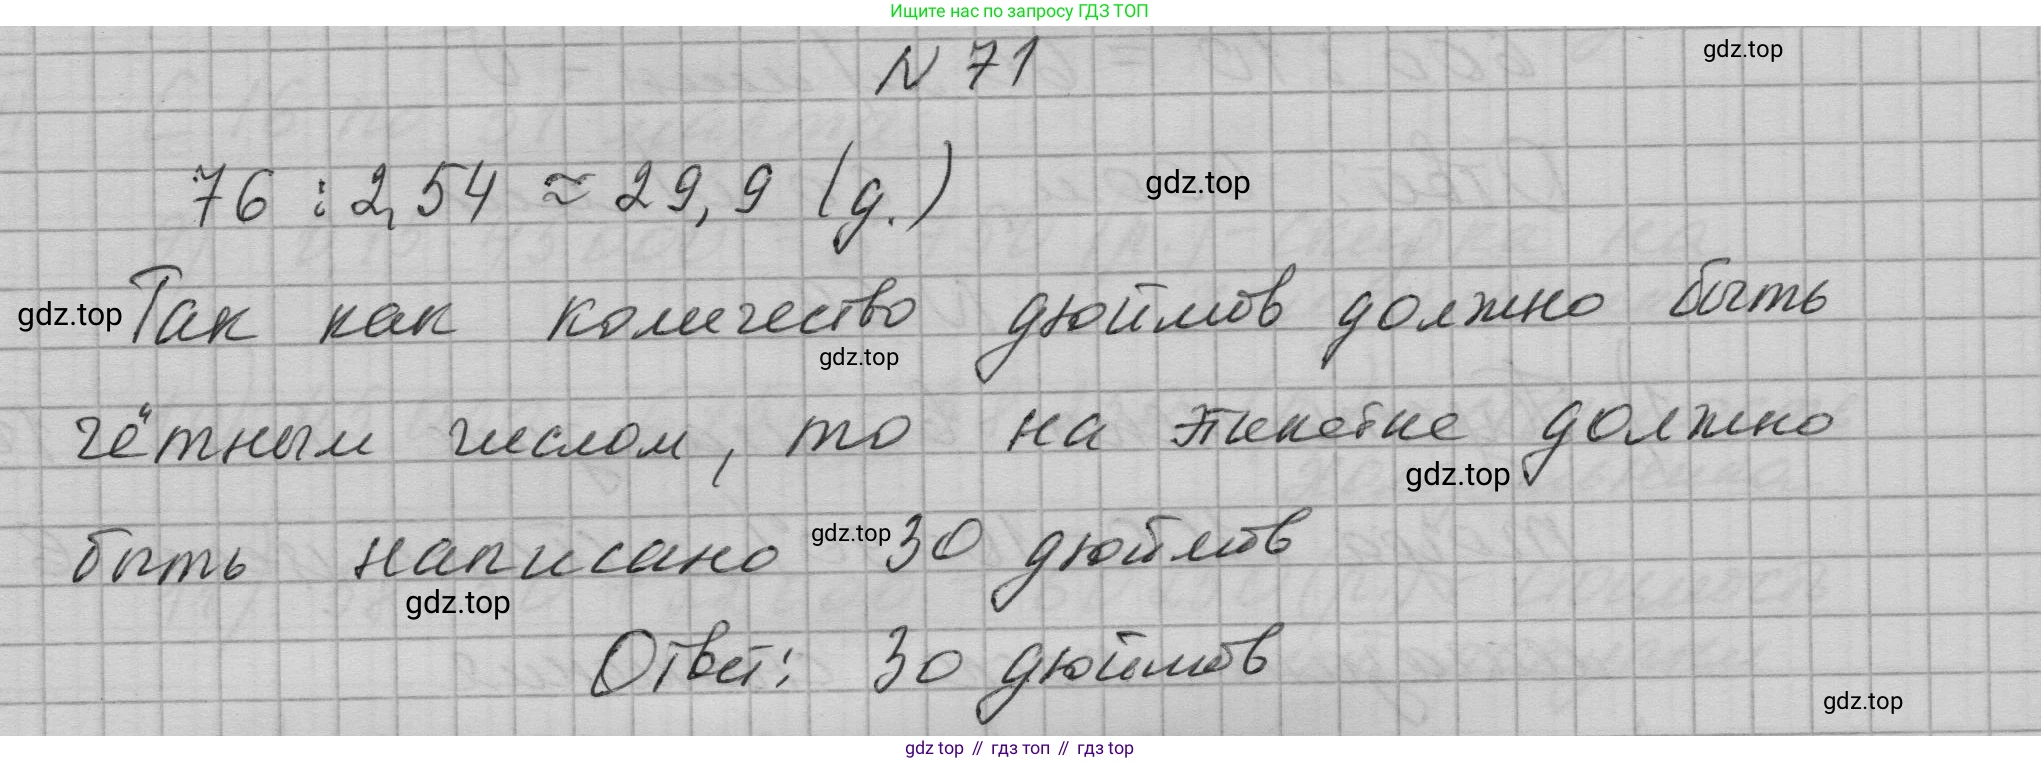 Ищите нас по запросу ГДЗ ТОП
N 71
gdz.top
76 : 2,54 ≈ 29,9 (д.)
gdz.top
gdz.top
Так как количество дюймов должно быть
gdz.top
чётным числом, то на этикетке должно
gdz.top
быть написано 30 дюймов
gdz.top
gdz.top
Ответ: 30 дюймов
gdz.top
gdz top // гдз топ // гдз top